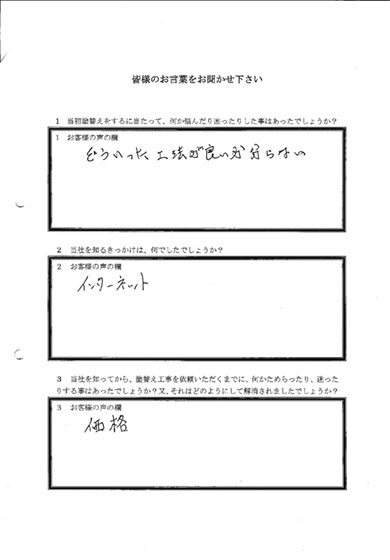 皆様のお言葉をお聞かせ下さい
1 当初塗替えをするに当たって、何か悩んだり迷ったりした事はあったでしょうか?
1 お客様の声の欄
どういった工法が良いか分らない
2 当社を知るきっかけは、何でしたでしょうか?
2 お客様の声の欄
インターネット
3 当社を知ってから、塗替え工事を依頼いただくまでに、何かためらったり、迷った
りする事はあったでしょうか?又、それはどのようにして解消されましたでしょうか?
3 お客様の声の欄
価格